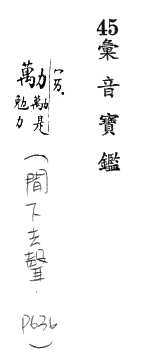 45彙音寶鑑
勱
勱是
勉力
(間下去聲. P636)